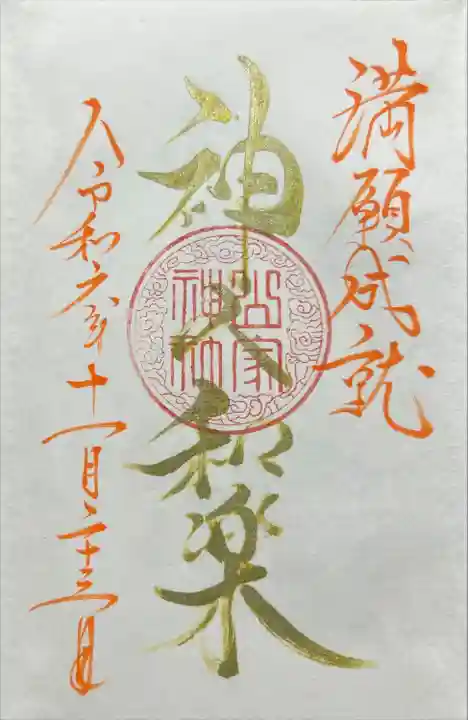 満願成就
神人和楽
山家神社
令和六年十一月二十三日